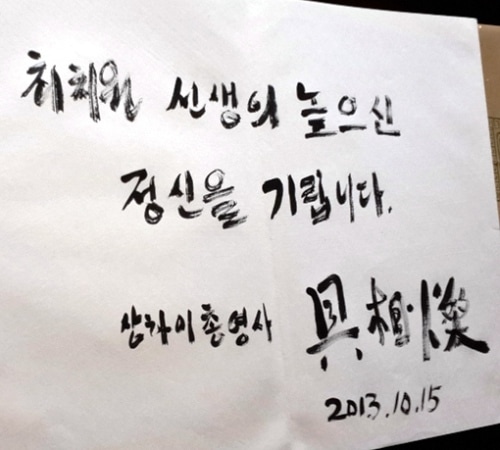 최치원 선생의 높으신
정신을 기립니다.
상하이총영사 具相燦
2013.10.15